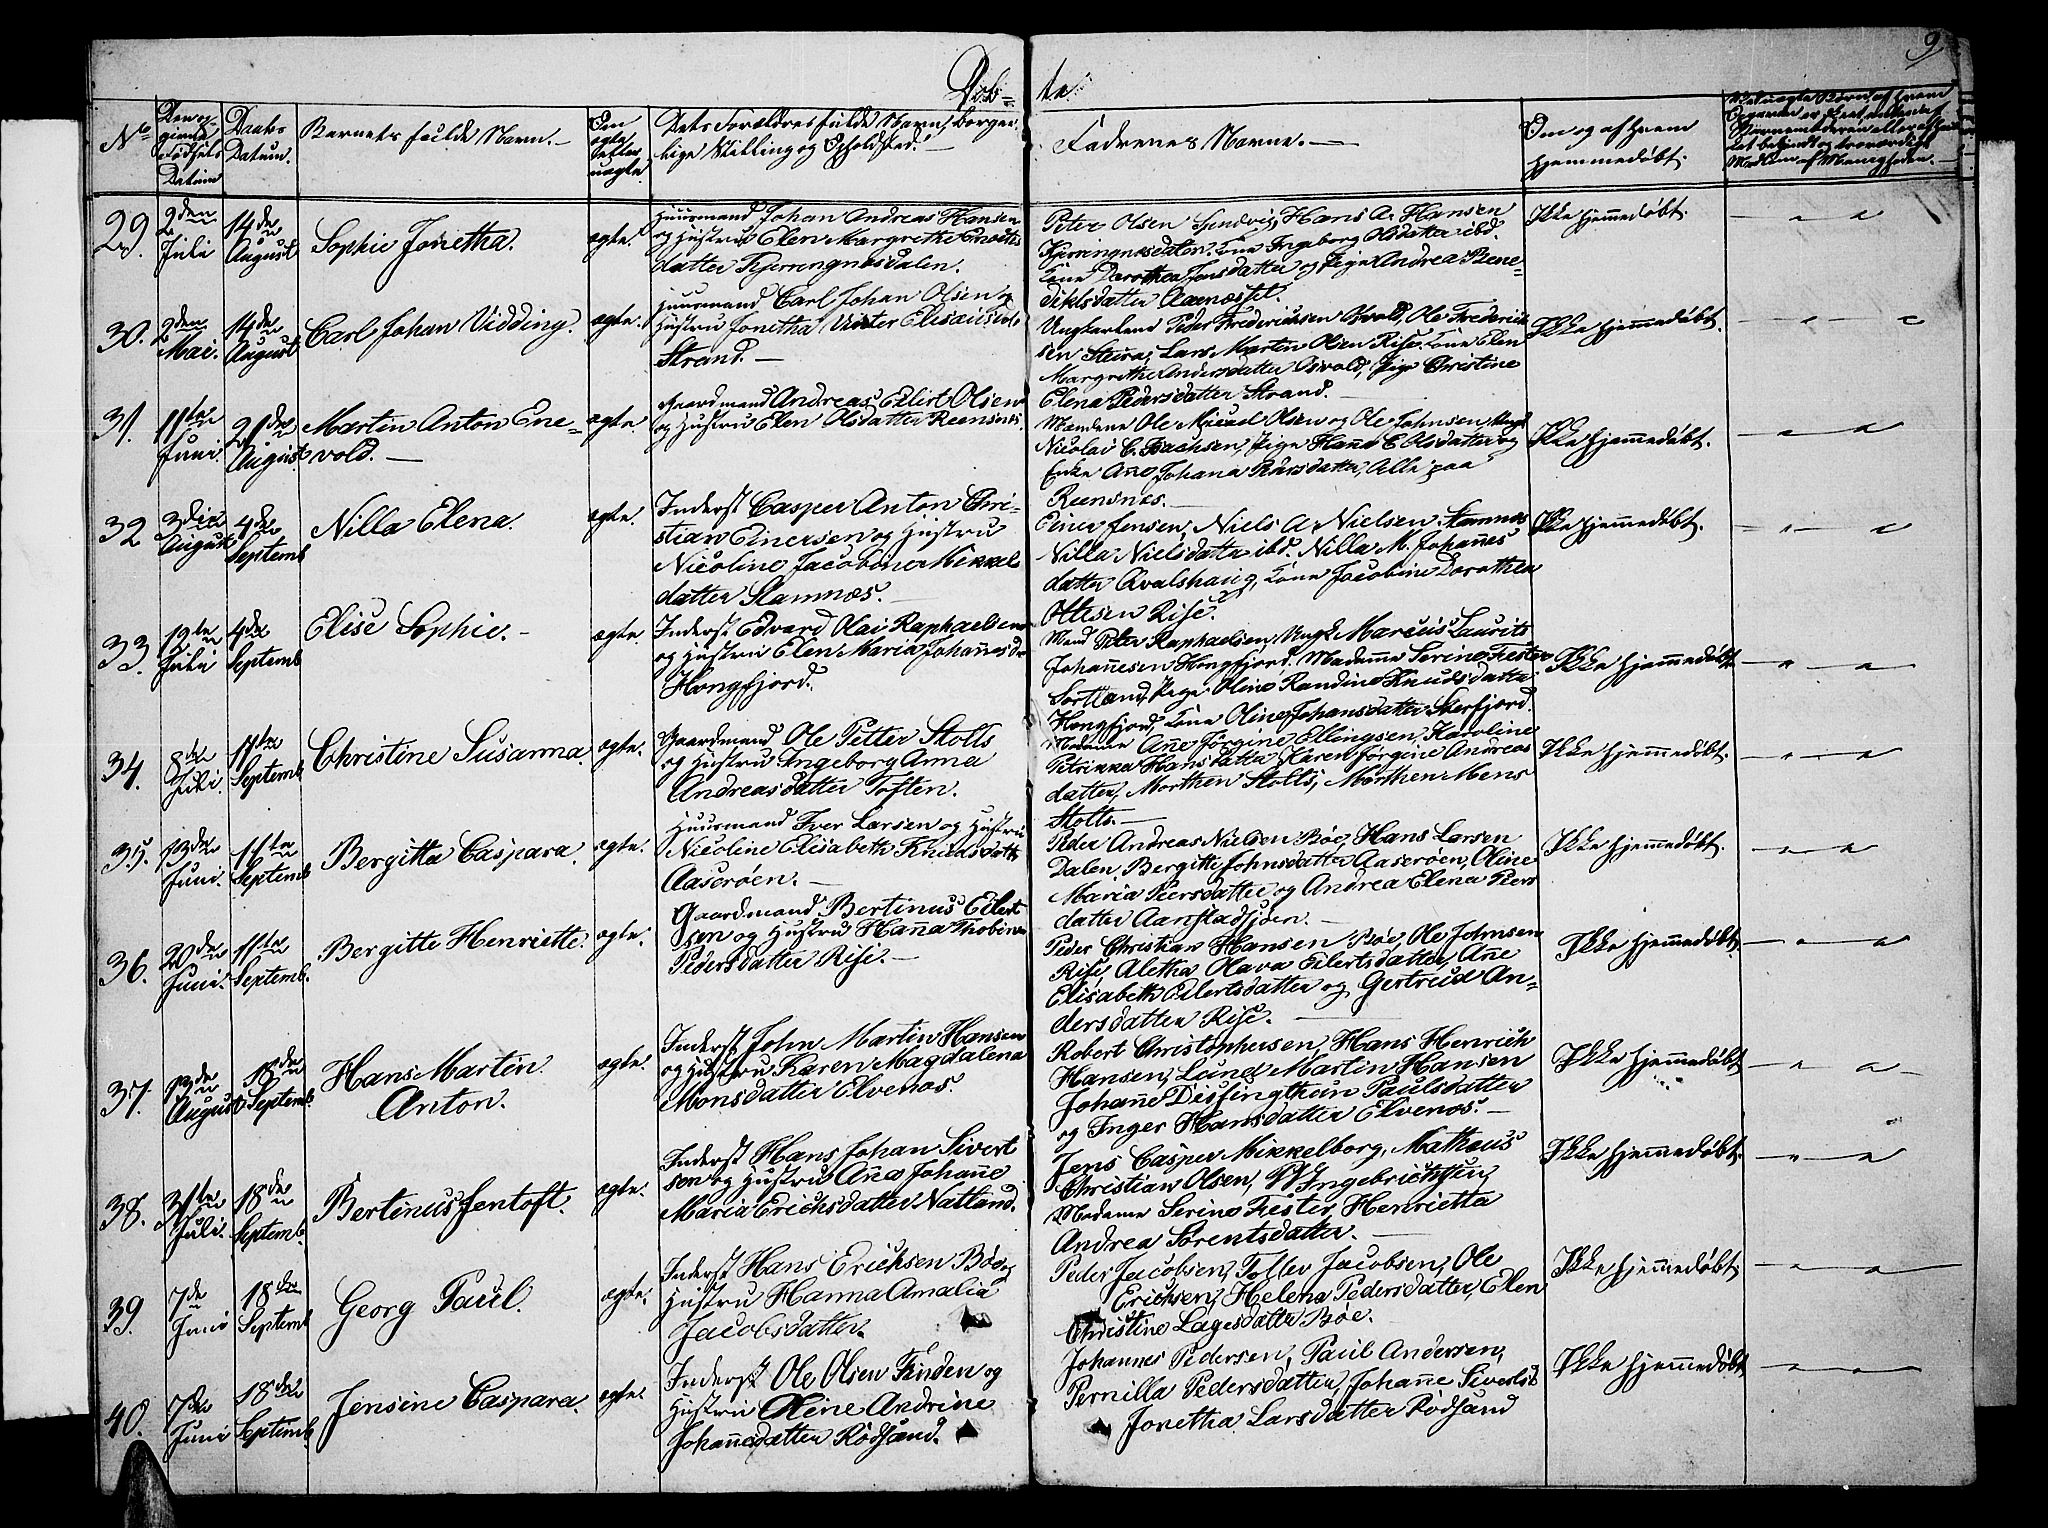 9
Døb= te.
No
Den og
givne
Fødsels
Datum
Daabs
Datum.
Barnets fulde Navn.
Om
ægte
eller
uægte.
Dets Forældres fulde Navn, borger-
lige Stilling og Opholdsted.
Fadrenes Navne.
Om og af hvem
hjemmedøbt.
29. 2den Juli 14de August Sophie Jonetha. ægte.
Huusmand Johan Andreas Hansen
og Hustru Elen Margrethe Enocks
datter Kjerringnæsdalen.
Peter Olsen Spindvig, Hans A. Hansen
Kjerringnæsdalen. Kone Ingeborg Olsdatter ibd.
Kone Dorothea Jensdatter og Pige Andrea Bene-
diktsdatter Aanæsset.
Ikke hjemmedøbt.
30. 2den Mai. 14de August Carl Johan Vidding. ægte.
Huusmand Carl Johan Olsen og
Hustru Jonetha Vinter
Strand.
Ungkarlene Peder Frederiksen Osvold, Ole Frederik
sen Steiro, Lars Martin Olsen Rise. Kone Elen
Margrethe Andersdatter Osvold, Pige Christine
Elena Pedersdatter Strand.
Ikke hjemmedøbt.
31. 11te Juni. 21de August Martin Anton Ene-
vold. ægte.
Gaardmand Andreas Eilert Olsen
og Hustru Elen Olsdatter Reensnæs.
Mændene Ole Mikael Olsen og Ole Johnsen, Ungk.
Nicolai C. Bachsen, Pige Hanna E. Olsdatter og
Enke Ane Johana Larsdatter, Alle paa
Reensnes.
Ikke hjemmedøbt.
32 3die August 4de Septemb Nilla Elena. ægte.
Inderst Casper Anton Chri-
stian Einersen og Hustru
Nicoline Jacobine Mikkel
datter Stamnæs.
Einer Jensen, Niels A. Nielsen Stamnæs
Nilla Nielsdatter ibd. Nilla M. Johannes
datter Kvalshaug, Kone Jacobine Dorothea
Ottesen Rise.
Ikke hjemmedøbt.
33. 19te Juli 4de Septemb Elise Sophie. ægte
Inderst Edvard Olai Raphaelsen
og Hustru Elen Maria Johannesd.
Hongfjord.
Mand Peter Raphaelsen, Ungk. Marcus Laurits
Johannesen Hongfjord. Madamme Serine Fester
Sortland, Pige Oline Randine Knudsdatter
Hongfjord, Kone Oline Johansdatter Sterfjord.
Ikke hjemmedøbt.
34. 8de Juli. 11te Septemb Christine Susanna. ægte.
Gaardmand Ole Petter Stolts
og Hustru Ingeborg Anna
Andreasdatter Toften.
Madamme Ane Jørgine Ellingsen, Karoline
Petrikka Hansdatter, Karen Jørgine Andreas
datter, Morthen Stolts, Morthen Mens
Stolts.
Ikke hjemmedøbt.
35. 13de Juni. 11te Septemb Bergitta Caspara. ægte.
Huusmand Iver Larsen og Hustru
Nicoline Elisabeth Knudsdatter
Aaserøen.
Peder Andreas Nielsen Bøe, Hans Larsen
Dalen, Bergitte Johnsdatter Aaserøen, Oline
Maria Peersdatter og Andrea Elena Peers
datter Aanstadsjøen.
Ikke hjemmedøbt.
36. 20de Juni. 11te Septemb. Bergitte Henriette. ægte.
Gaardmand Bertinus Eilert
sen og Hustru Hanna Thobine
Pedersdatter Rise.
Peder Christian Hansen Bøe, Ole Johnsen
Rise, Aletha Olava Eilertsdatter, Ane
Elisabeth Eilertsdatter og Gertrud An-
dersdatter Rise.
Ikke hjemmedøbt.
37. 13de August 18de Septemb. Hans Martin
Anton. ægte.
Inderst John Martin Hansen
og Hustru Karen Magdalena
Monsdatter Elvenæs.
Robert Christophersen, Hans Henrich
Hansen, Leinel Martin Hansen
Johanne Disfingthun Paulsdatter
og Inger Hansdatter Elvenæs.
Ikke hjemmedøbt
38. 31te Juli. 18de Septemb. Bertinus Jentoft. ægte.
Inderst Hans Johan Sivert
sen og Hustru Ana Johanne
Maria Erichsdatter Natland.
Jens Casper Mikkelborg, Mathæus
Christian Olsen, P. W. Ingebrichtsen,
Madame Serine Fester, Henrietta
Andrea Sørentsdatter.
Ikke hjemmedøbt.
39. 7de Juni 18de Septemb Georg Paul. ægte.
Inderst Hans Erichsen Bø og
Hustru Hanna Amalia
Jacobsdatter.
Peder Jacobsen, Toller Jacobsen, Ole
Erichsen, Helena Pedersdatter, Elen
Christine Lagesdatter Bøe.
Ikke hjemmedøbt.
40. 7de Juni 18de Septemb. Jensine Caspara. ægte.
Inderst Ole Olsen Finden og
Hustru Oline Andrine
Johannesdatter Rødsand.
Johannes Pedersen, Paul Andersen,
Pernilla Pedersdatter, Johanne Sivertsd.
Jonetha Larsdatter Rødsand
Ikke hjemmedøbt